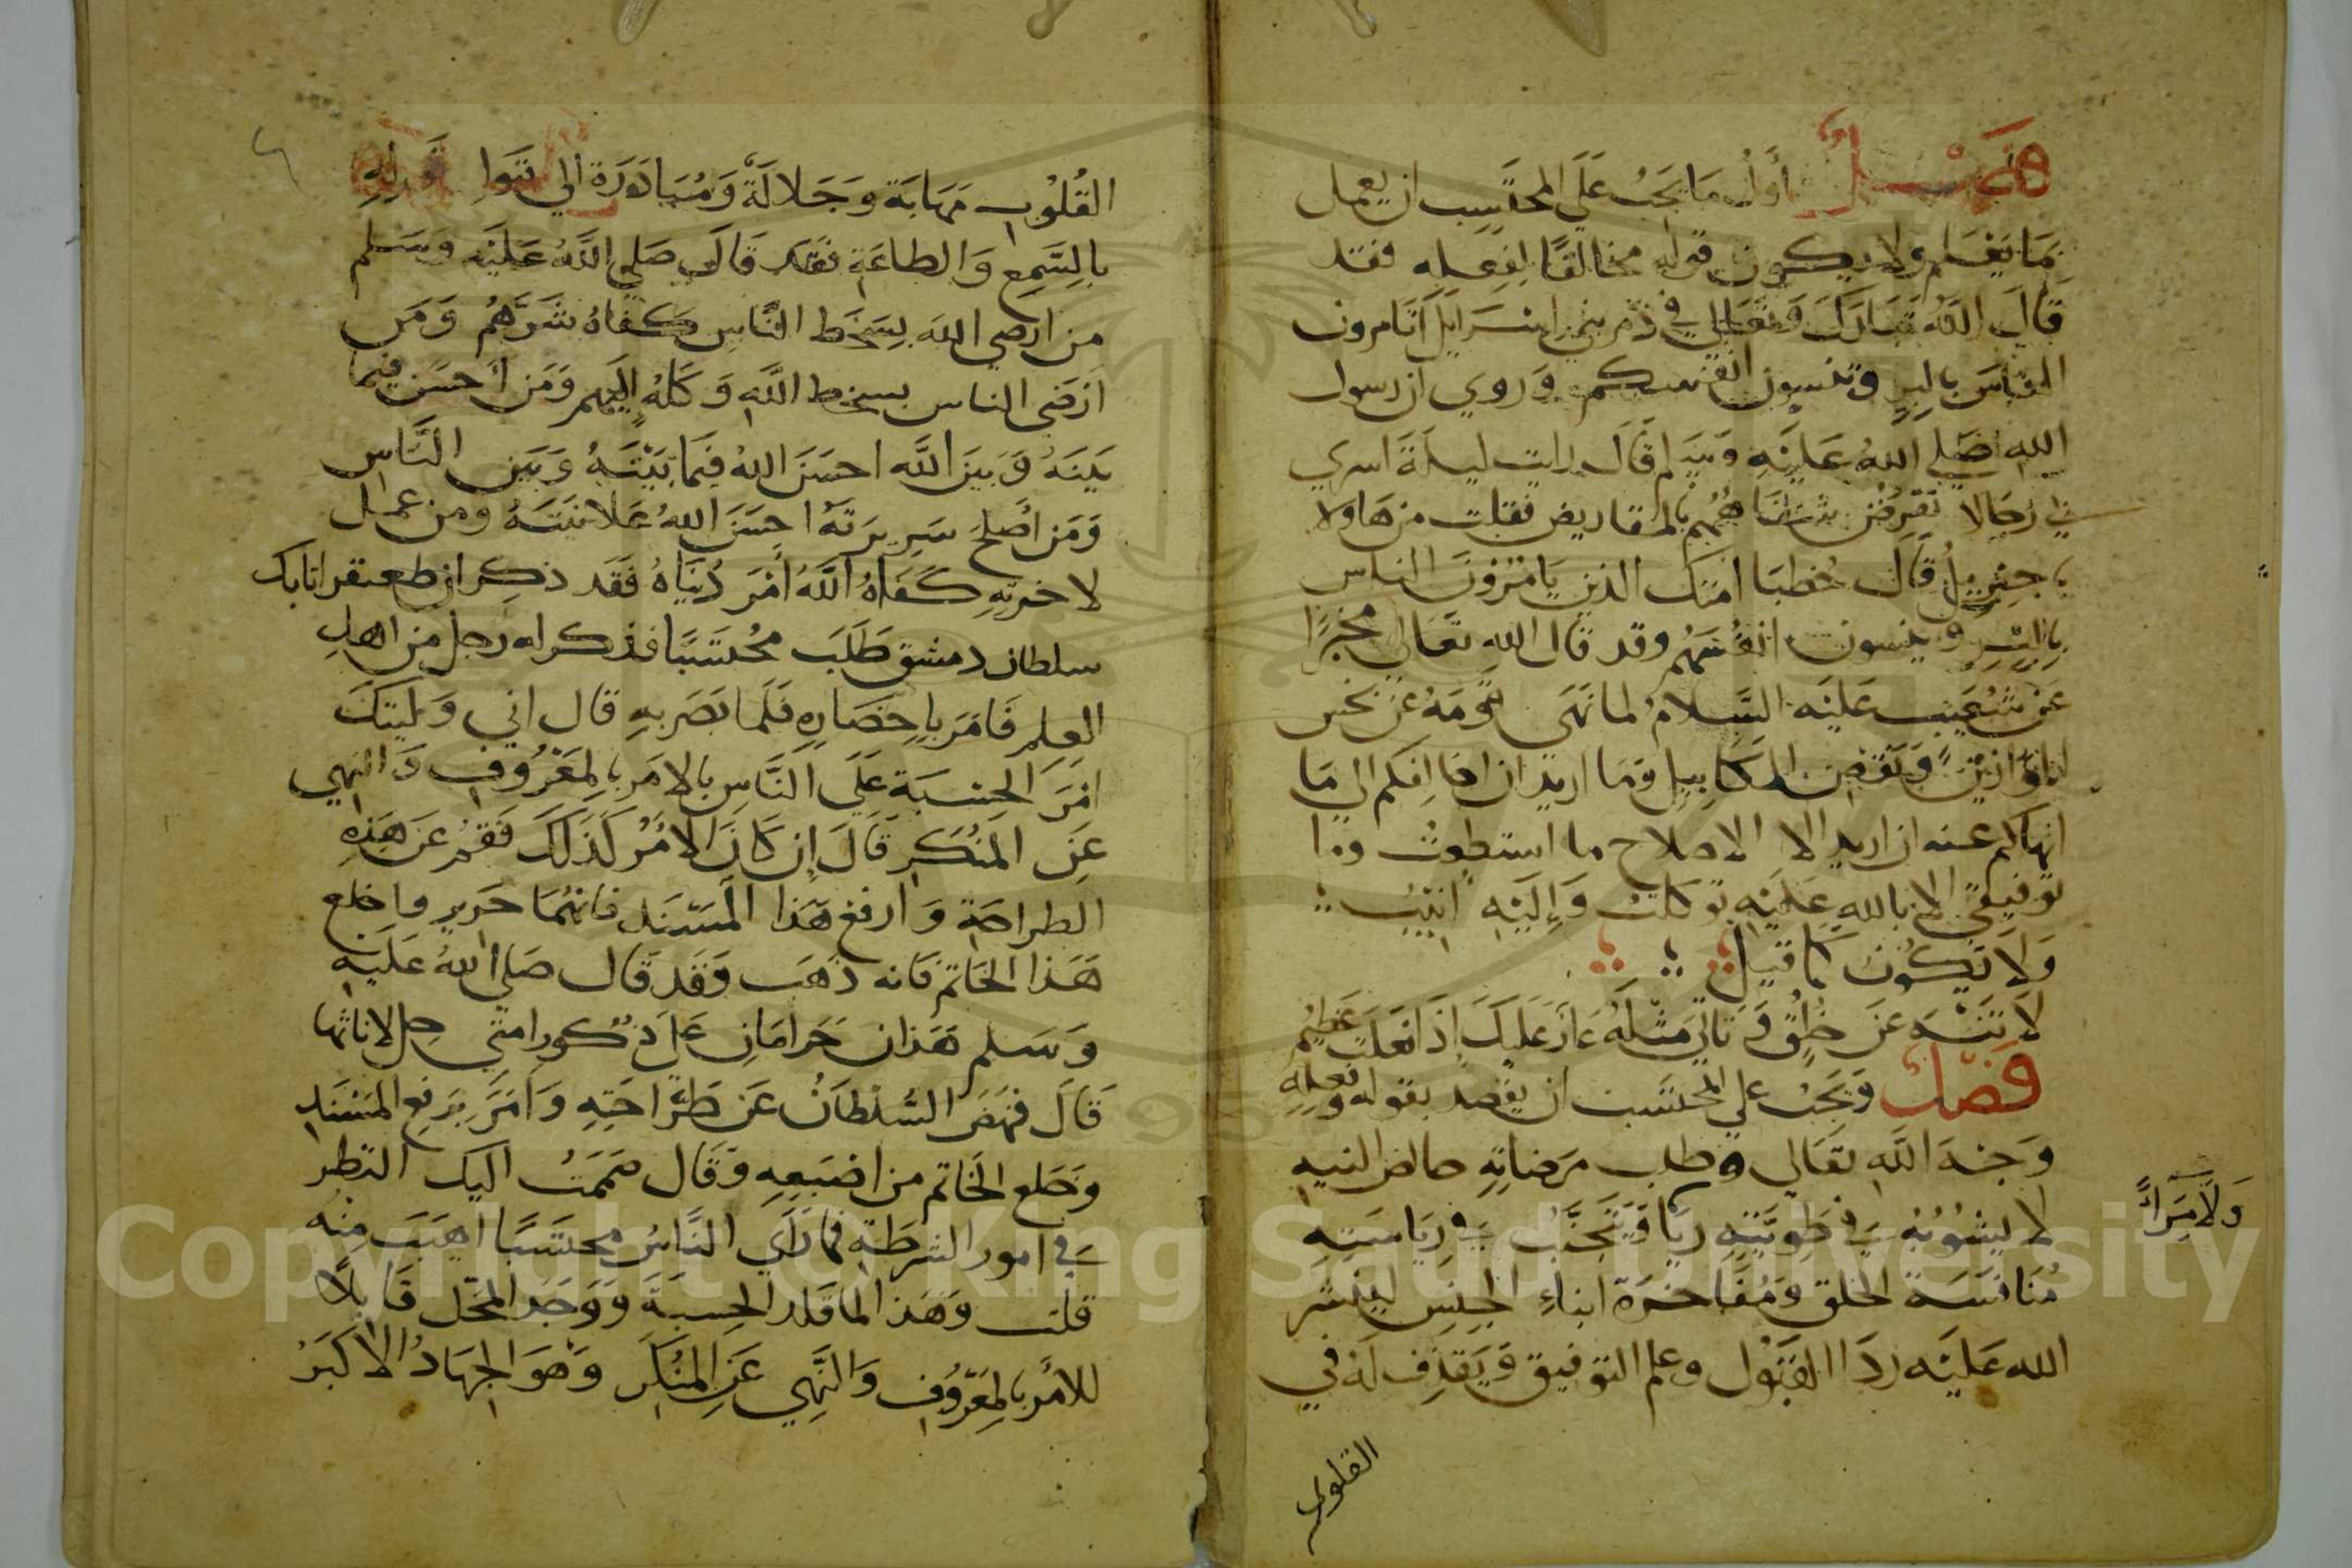 فصل أول ما يجب على المحتسب ان يعمل
بما يعلم ولا يكون قوله مخالفا لفعله فقد
قال الله تبارك وتعالى في ذم بني اسرايل اتامرون
الناس بالبر وتنسون انفسكم وروي ان رسول
الله صلى الله عليه وسلم قال رايت ليلة اسري
بي رجالا تقرض شفاههم بالمقاريض فقلت من هاولا
يا جبريل قال خطبا امتك الذين يامرون الناس
بالبر وينسون انفسهم وقد قال الله تعالى مخبرا
عن شعيب عليه السلام لما نهى قومه عن بخس
الموازين ونقص المكاييل وما اريد ان اخالفكم الى ما
انهاكم عنه ان اريد الا الاصلاح ما استطعت وما
توفيقي الا بالله عليه توكلت وإليه انيب
ولا تكون كما قيل
لا تنه عن خلق وتاتي مثله عار عليك إذا فعلت عظيم
فصل ويجب على المحتسب ان يقصد بقوله وفعله
وجه الله تعالى وطلب مرضاته خالص النيه
لا يشوبه في طويته ريا ولا مرا ويتجنب في رياسته
منافسة الخلق ومفاخرة ابناء الجنس لينشر
الله عليه ردا القبول وعلم التوفيق ويقذف له في
القلوب
القلوب مهابة وجلالة ومبادرة الى قبول قوله
بالسمع والطاعة فقد قال صلى الله عليه وسلم
من ارضى الله بسخط الناس كفاه شرهم ومن
ارضى الناس بسخط الله وكله إليهم ومن أحسن فيما
بينه وبين الله احسن الله فيما بينه وبين الناس
ومن اصلح سريرته احسن الله علانيته ومن عمل
لاخرته كفاه الله أمر دنياه فقد ذكر ان طغتقر اتابك
سلطان دمشق طلب محتسبا فذكر له رجل من اهل
العلم فامر باحضاره فلما بصر به قال اني وليتك
امر الحسبة على الناس بالامر بالمعروف والنهي
عن المنكر قال إن كان الامر كذلك فقم عن هذه
الطراحة وارفع هذا المسند فانهما حرير واخلع
هذا الخاتم فانه ذهب وقد قال صلى الله عليه
وسلم هذان حرامان على ذكور امتي حل لاناثها
قال فنهض السلطان عن طراحته وامر برفع المسند
وخلع الخاتم من اصبعه وقال ضممت اليك النظر
في امور الشرطة فما رأى الناس محتسبا اهيب منه
قلت وهذا لما قلد الحسبة ووجد المحل قابلا
للأمر بالمعروف والنهي عن المنكر وهو الجهاد الاكبر
Copyright © King Saud University